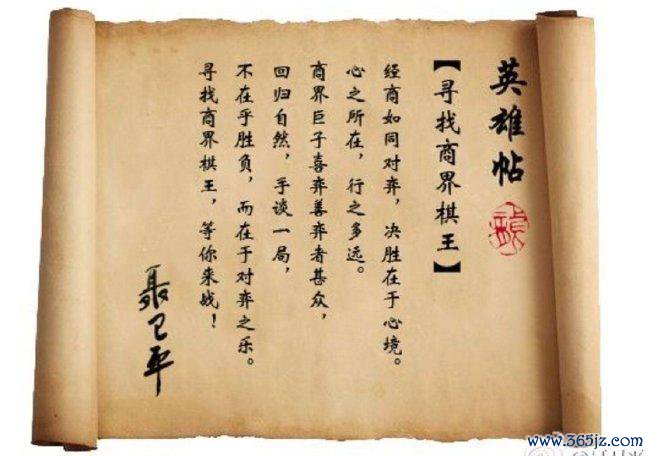 英雄帖
【寻找商界棋王】
经商如同对弈，决胜在于心境。
心之所在，行之多远。
商界巨子喜弈善弈者甚众，
回归自然，手谈一局，
不在乎胜负，而在于对弈之乐。
寻找商界棋王，等你来战！
聂卫平
www.365jz.com